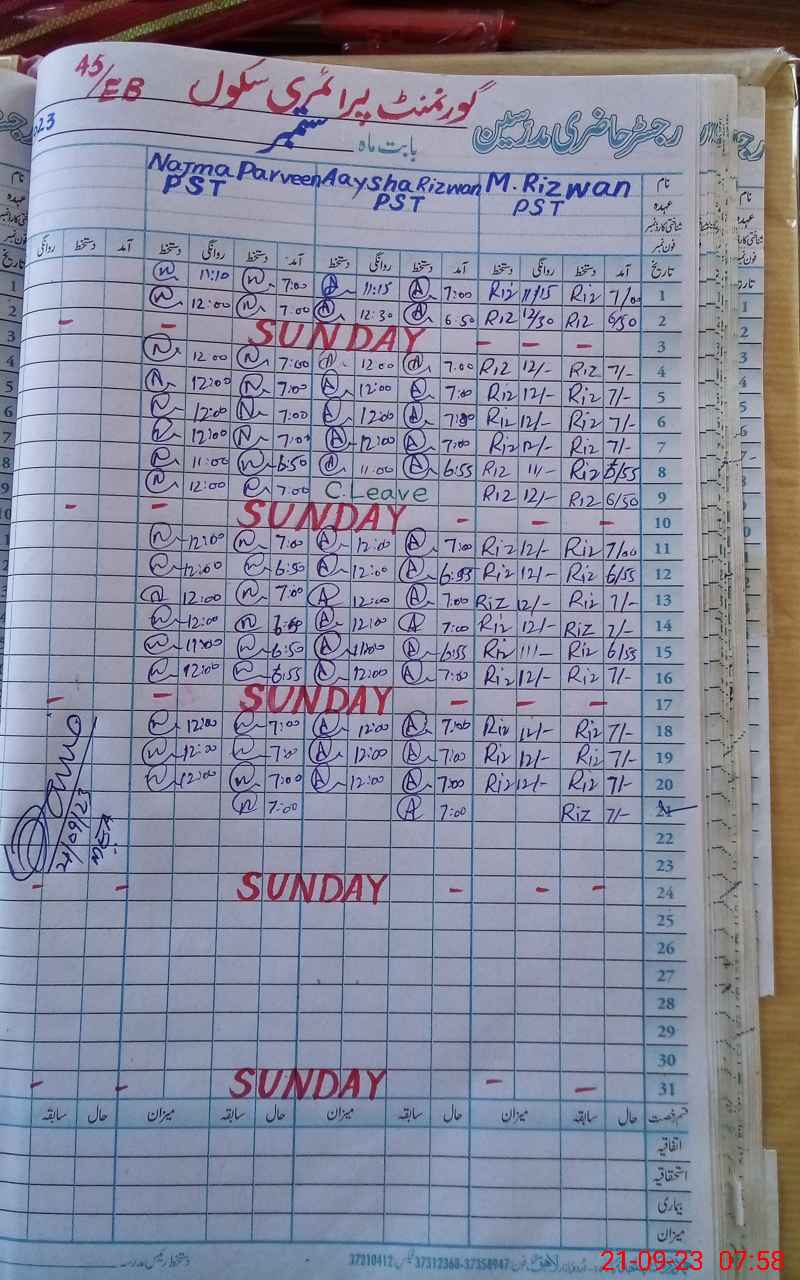 45/EB گورنمنٹ پرائمری سکول
رجسٹر حاضری مدرسین
بابت ماہ ستمبر
نام M. Rizwan Aaysha Rizwan Najma Parveen
عہدہ PST PST PST
فون نمبر
تاریخ آمد دستخط روانگی دستخط آمد دستخط روانگی دستخط آمد دستخط روانگی دستخط آمد دستخط روانگی
1 7/00 Riz 11/15 Riz 7:00 A 11:15 A 7:00 N 11:10 N
2 6/50 Riz 12/30 Riz 6:50 A 12:30 A 7:00 N 12:00 N
3 SUNDAY
4 7/- Riz 12/- Riz 7:00 A 12:00 A 7:00 N 12:00 N
5 7/- Riz 12/- Riz 7:00 A 12:00 A 7:00 N 12:00 N
6 7/- Riz 12/- Riz 7:00 A 12:00 A 7:00 N 12:00 N
7 7/- Riz 12/- Riz 7:00 A 12:00 A 7:00 N 12:00 N
8 6/55 Riz 11/- Riz 6:55 A 11:00 A 6:50 N 11:00 N
9 6/50 Riz 12/- Riz C. Leave 7:00 N 12:00 N
10 SUNDAY
11 7/00 Riz 12/- Riz 7:00 A 12:00 A 7:00 N 12:00 N
12 6/55 Riz 12/- Riz 6:55 A 12:00 A 6:50 N 12:00 N
13 7/- Riz 12/- Riz 7:00 A 12:00 A 7:00 N 12:00 N
14 7/- Riz 12/- Riz 7:00 A 12:00 A N 12:00 N
15 6/55 Riz 11/- Riz 6:55 A 11:00 A 6:50 N 11:00 N
16 7/- Riz 12/- Riz 7:00 A 12:00 A 6:55 N 12:00 N
17 SUNDAY
18 7/- Riz 12/- Riz 7:00 A 12:00 A 7:00 N 12:00 N
19 7/- Riz 12/- Riz 7:00 A 12:00 A 7:00 N 12:00 N
20 7/- Riz 12/- Riz 7:00 A 12:00 A 7:00 N 12:00 N
21 7/- Riz 7:00 A 7:00 N
21/09/23
MEA
22
23
24 SUNDAY
25
26
27
28
29
30
31 SUNDAY
قسم رخصت حال سابقہ میزان حال سابقہ میزان حال سابقہ میزان حال سابقہ
اتفاقیہ
استحقاقیہ
بیماری
میزان
دستخط رئیس مدرسہ
37310412 37312368-37358947
21-09-23 07:58